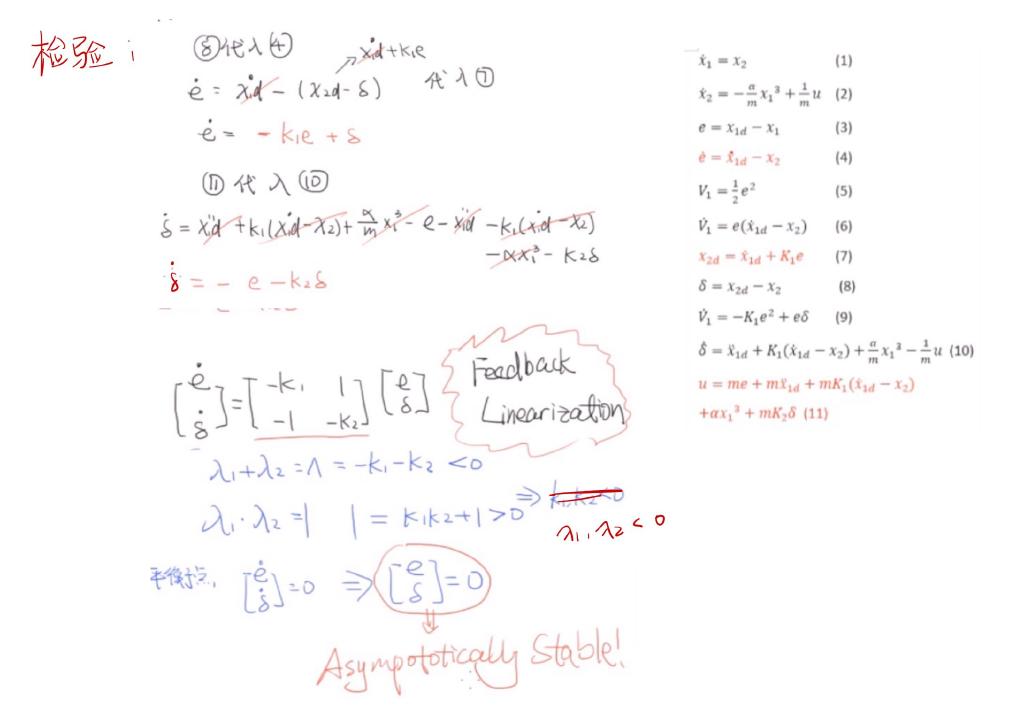 检验:
⑧代入④
ẋ₁d+k₁e
ė = ẋ₁d - (x₂d - δ) 代入⑦
ė = - k₁e + δ
⑪ 代入 ⑩
δ̇ = ẍ₁d + k₁(ẋ₁d-x₂) + α/m x₁³ - e - ẍ₁d - k₁(ẋ₁d-x₂)
-αx₁³ - k₂δ
δ̇ = - e - k₂δ
[ė δ̇] = [-k₁ 1 -1 -k₂] [e δ]
Feedback
Linearization
λ₁+λ₂ = Λ = -k₁-k₂ <0
λ₁·λ₂ = | | = k₁k₂+1 >0 ⇒ k₁,k₂<0
λ₁,λ₂ < 0
平衡点, [ė δ̇]=0 ⇒ [e δ]=0
⇓
Asympototically Stable!
ẋ₁ = x₂ (1)
ẋ₂ = -α/m x₁³ + 1/m u (2)
e = x₁d - x₁ (3)
ė = ẋ₁d - x₂ (4)
V₁ = 1/2 e² (5)
V̇₁ = e(ẋ₁d - x₂) (6)
x₂d = ẋ₁d + K₁e (7)
δ = x₂d - x₂ (8)
V̇₁ = -K₁e² + eδ (9)
δ̇ = ẍ₁d + K₁(ẋ₁d - x₂) + α/m x₁³ - 1/m u (10)
u = me + mẍ₁d + mK₁(ẋ₁d - x₂)
+αx₁³ + mK₂δ (11)